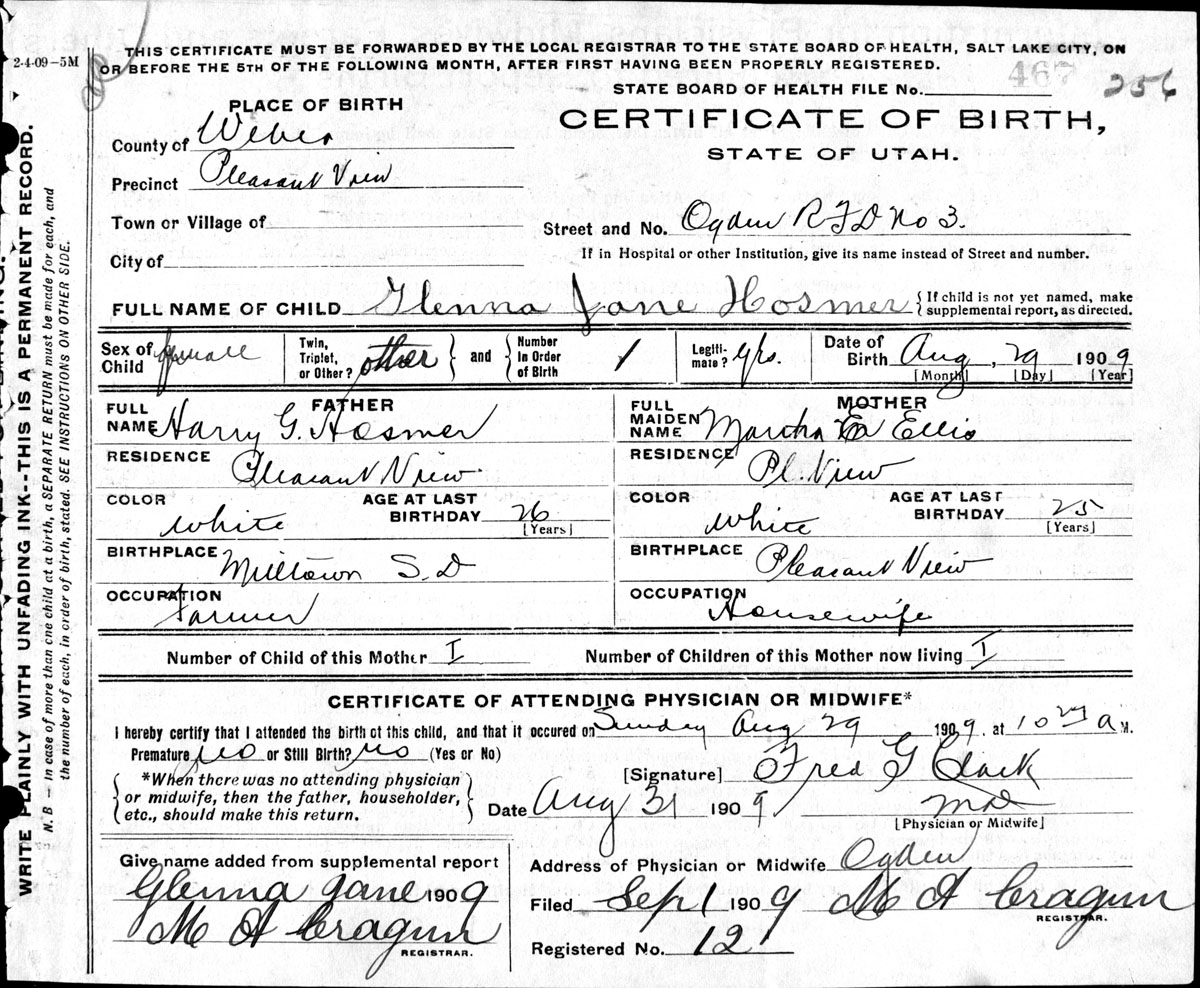 THIS CERTIFICATE MUST BE FORWARDED BY THE LOCAL REGISTRAR TO THE STATE BOARD OF HEALTH, SALT LAKE CITY, ON
2-4-09-5M
OR BEFORE THE 5TH OF THE FOLLOWING MONTH, AFTER FIRST HAVING BEEN PROPERLY REGISTERED.
467
256
STATE BOARD OF HEALTH FILE No.
PLACE OF BIRTH
CERTIFICATE OF BIRTH,
STATE OF UTAH.
County of Weber
Precinct Pleasant View
Town or Village of
Street and No. Ogden R F D No 3.
City of
If in Hospital or other Institution, give its name instead of Street and number.
FULL NAME OF CHILD Glenna Jane Hosmer { If child is not yet named, make
supplemental report, as directed.
Sex of Child female
Twin, Triplet, or Other? other } and { Number in Order of Birth 1
Legiti-mate? yes.
Date of Birth Aug, 29 1909
[Month] [Day] [Year]
FATHER
FULL NAME Harry G. Hosmer
RESIDENCE Pleasant View
COLOR white
AGE AT LAST BIRTHDAY 26
[Years]
BIRTHPLACE Milltown S. D
OCCUPATION Farmer
MOTHER
FULL MAIDEN NAME Martha Ellis
RESIDENCE Pl. View
COLOR white
AGE AT LAST BIRTHDAY 25
[Years]
BIRTHPLACE Pleasant View
OCCUPATION Housewife
Number of Child of this Mother I
Number of Children of this Mother now living I
CERTIFICATE OF ATTENDING PHYSICIAN OR MIDWIFE*
I hereby certify that I attended the birth of this child, and that it occured on Sunday Aug 29 1909. at 10 a M.
Premature no or Still Birth? no (Yes or No)
*When there was no attending physician
or midwife, then the father, householder,
etc., should make this return.
[Signature] Fred G Clark
Date Aug 31 1909 MD
[Physician or Midwife]
Give name added from supplemental report
Glenna Jane 1909
M A Cragun
REGISTRAR.
Address of Physician or Midwife Ogden
Filed Sep 1 1909 M A Cragun
REGISTRAR.
Registered No. 12
WRITE PLAINLY WITH UNFADING INK--THIS IS A PERMANENT RECORD.
N. B - In case of more than one child at a birth, a SEPARATE RETURN must be made for each, and
the number of each, in order of birth, stated. SEE INSTRUCTIONS ON OTHER SIDE.